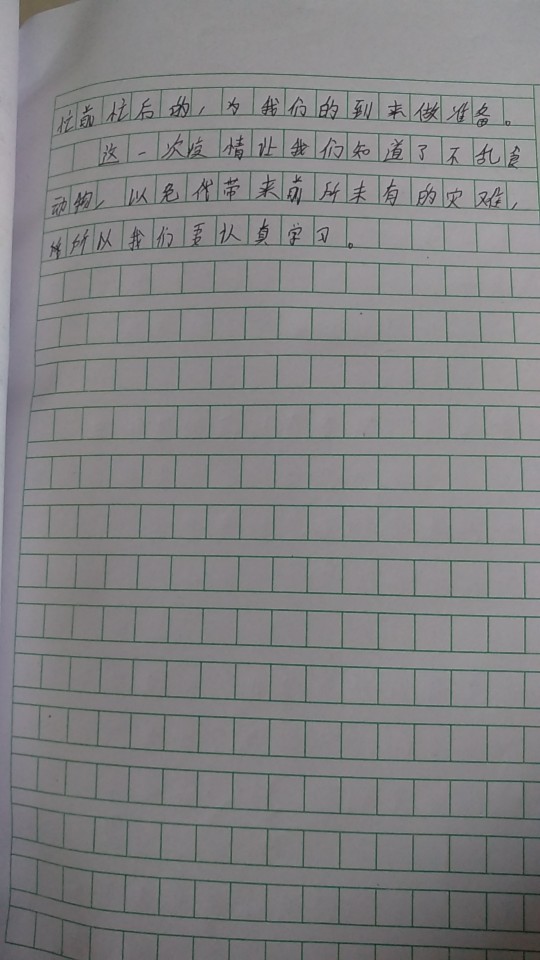 忙前忙后的,为我们的到来做准备。
这一次疫情让我们知道了不乱食
动物,以免代带来前所未有的灾难,
所以我们要认真学习。